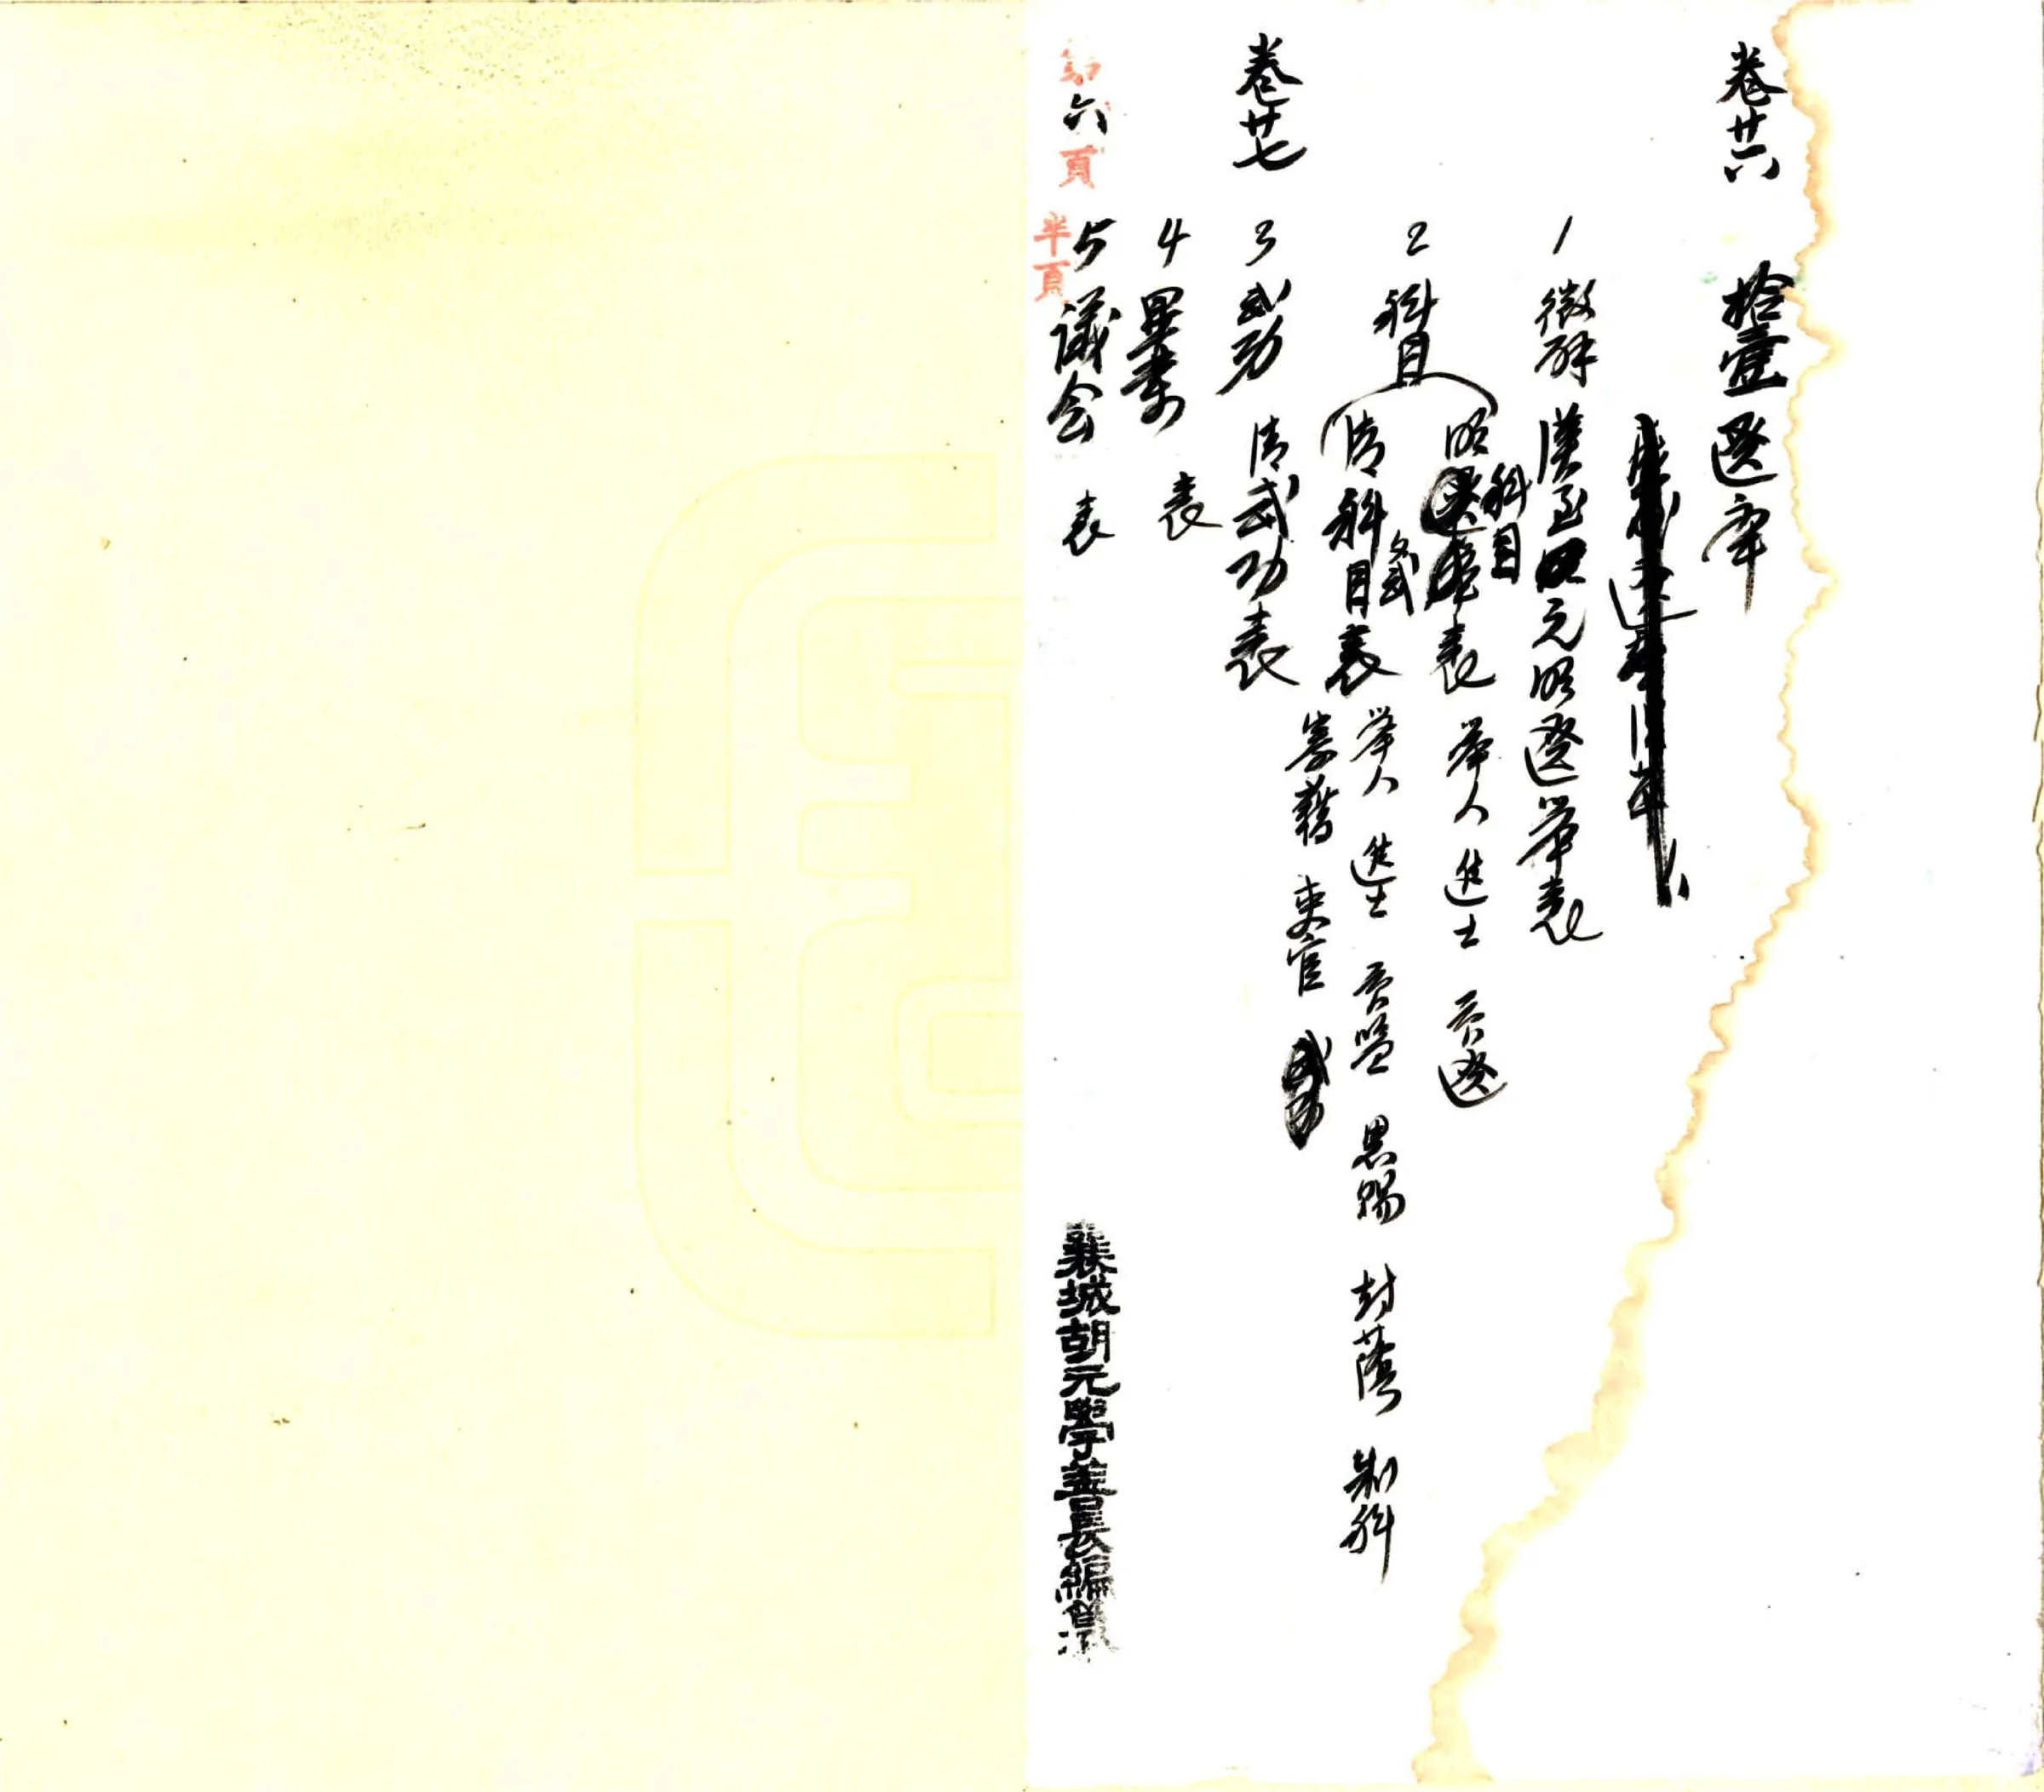 卷廿六 拾壹 選舉
1 徵辟 漢至元明選舉表
2 科目
明科目表 舉人 進士 貢選
清科目表 文武 舉人 進士 貢監 恩賜 封蔭 制科
寄籍 吏官
卷廿七 3 武功 清武功表
4 畢業 表
5 議会 表
第六頁
半頁
襄城胡元學善長編